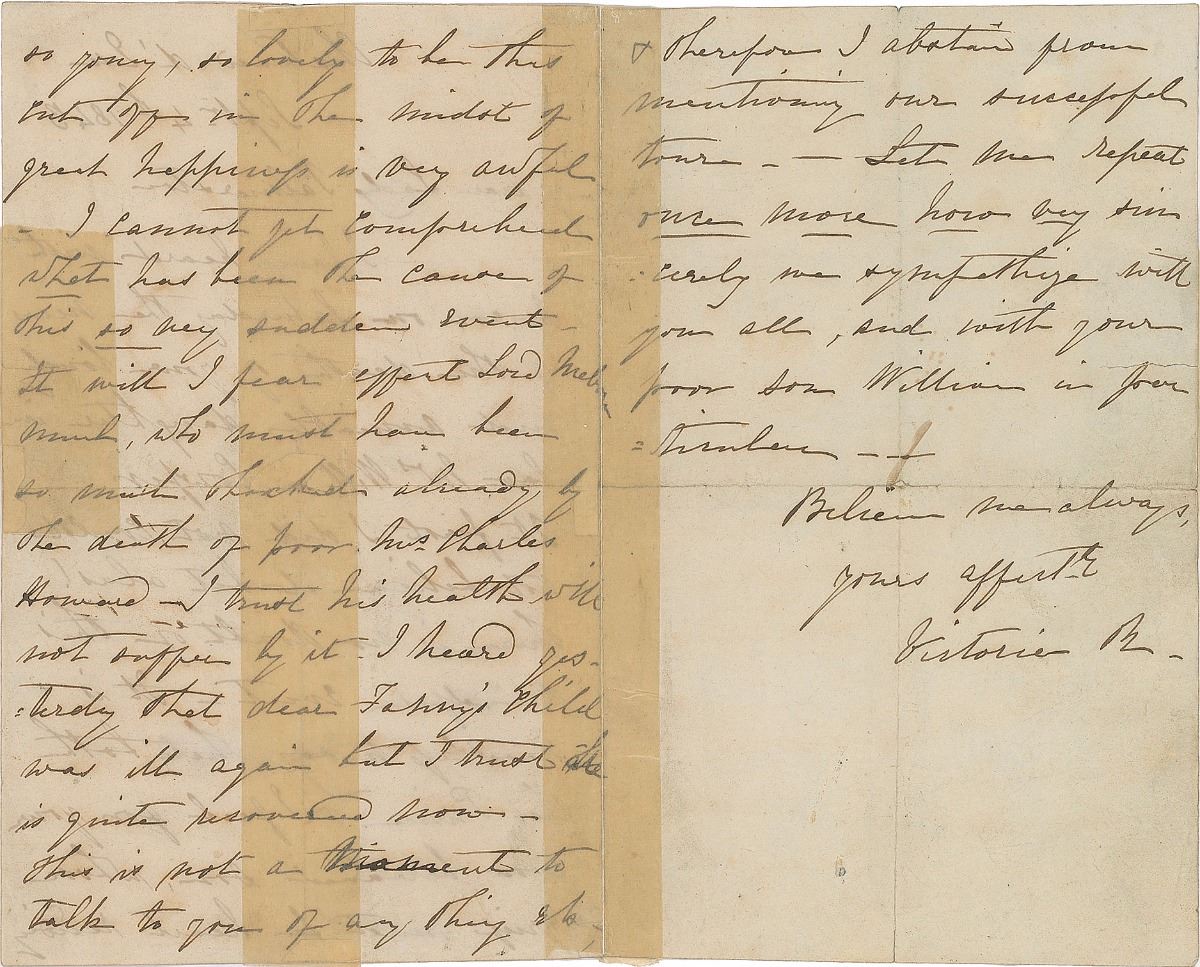 so young, so lovely to be thus
cut off in the midst of
great happiness is very awful
- I cannot yet comprehend
what has been the cause of
this so very sudden event -
It will I fear affect Lord Melbne
much, who must have been
so much shocked already, by
the death of poor Mrs Charles
Howard - I trust his health will
not suffer by it - I heard yes-
:terday that dear Fanny's Child
was ill again but I trust she
is quite recovered now -
This is not a moment to
talk to you of any thing else,
& therefore I abstain from
mentioning our successful
tour - — Let me repeat
once more how very sin
:cerely we sympathize with
you all, and with your
poor son William in par
=ticular - —
Believe me always,
yours affectly
Victoria R -